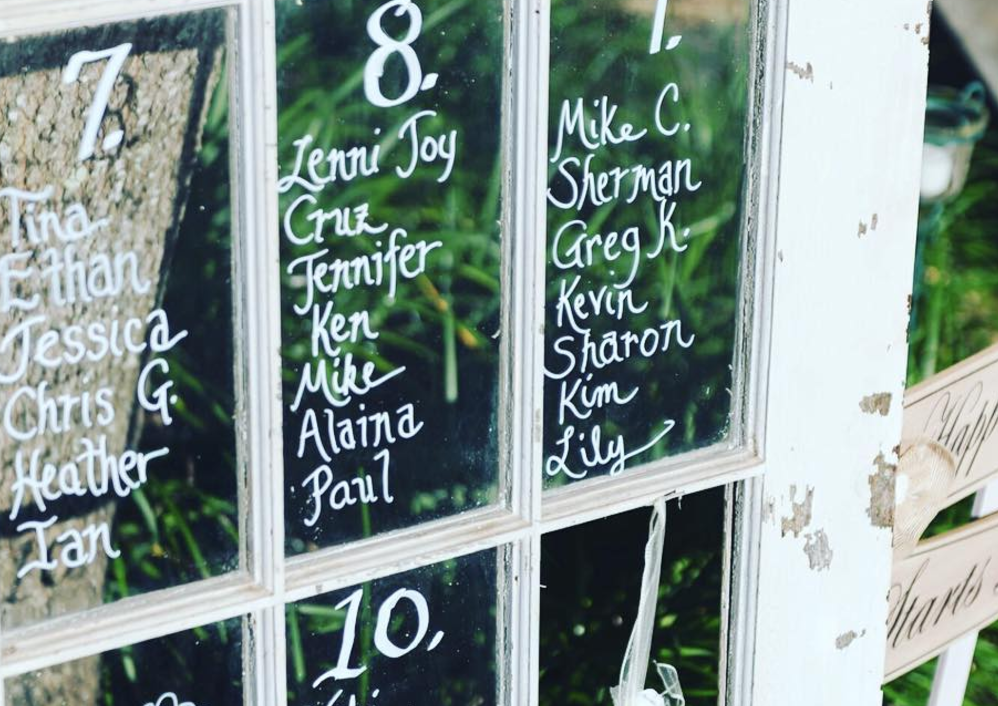 7.
Tina
Ethan
Jessica
Chris G.
Heather
Ian
8.
Lenni Joy
Cruz
Jennifer
Ken
Mike
Alaina
Paul
Mike C.
Sherman
Greg K.
Kevin
Sharon
Kim
Lily
10.
Starts